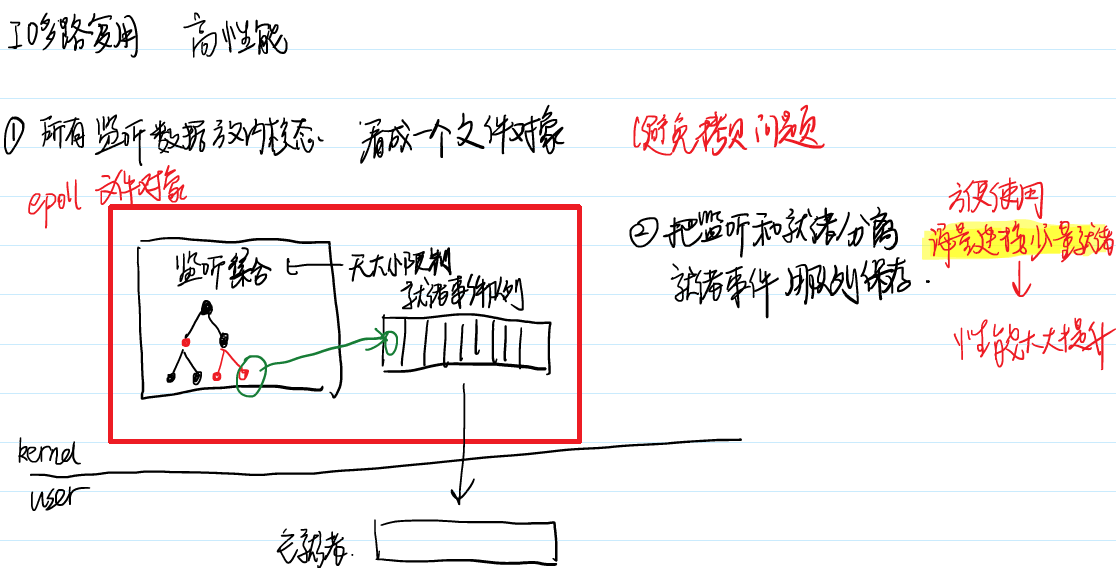 IO多路复用 高性能
① 所有监听数据放内核态. 看成一个文件对象 (避免拷贝问题
epoll 文件对象
监听集合
无大小限制
就绪事件队列
② 把监听和就绪分离
就绪事件用队列保存.
方便使用
海量连接少量就绪
性能大大提升
kernel
user
已就绪.